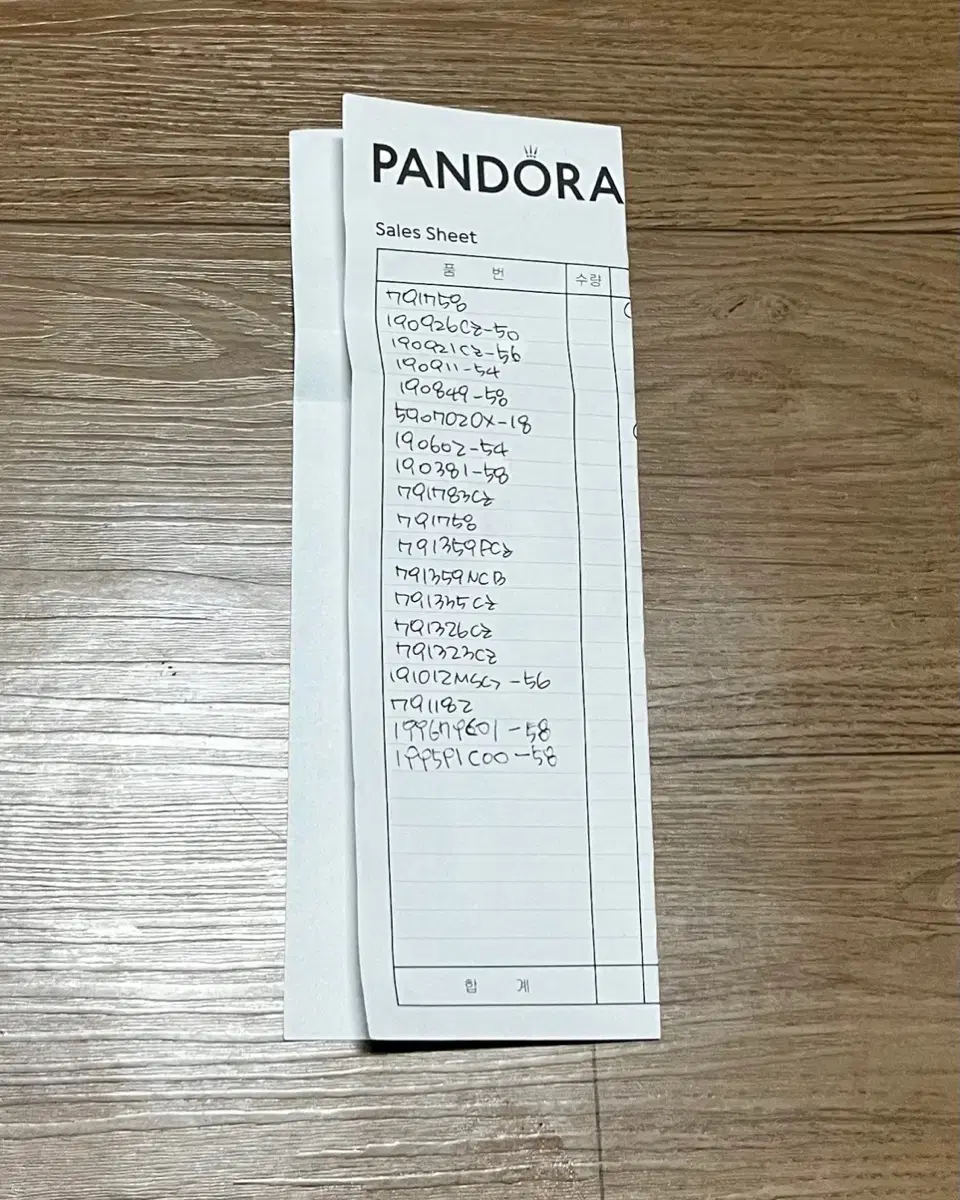 PANDORA
Sales Sheet
품 번 수량
791758
190926CZ-50
190921CZ-56
190911-54
190849-58
590702OX-18
190602-54
190381-58
791783CZ
791758
791359PCZ
791359NCB
791335CZ
791326CZ
791323CZ
191012MSG-56
791182
199679C01-58
199591C00-58
합 계